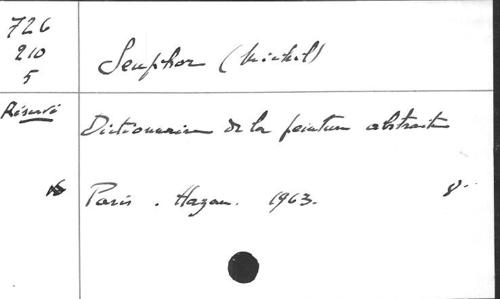 726
210
5
Seuphor (Michel)
Réservé
Dictionnaire de la peinture abstraite
Paris. Hazan. 1963. 8°